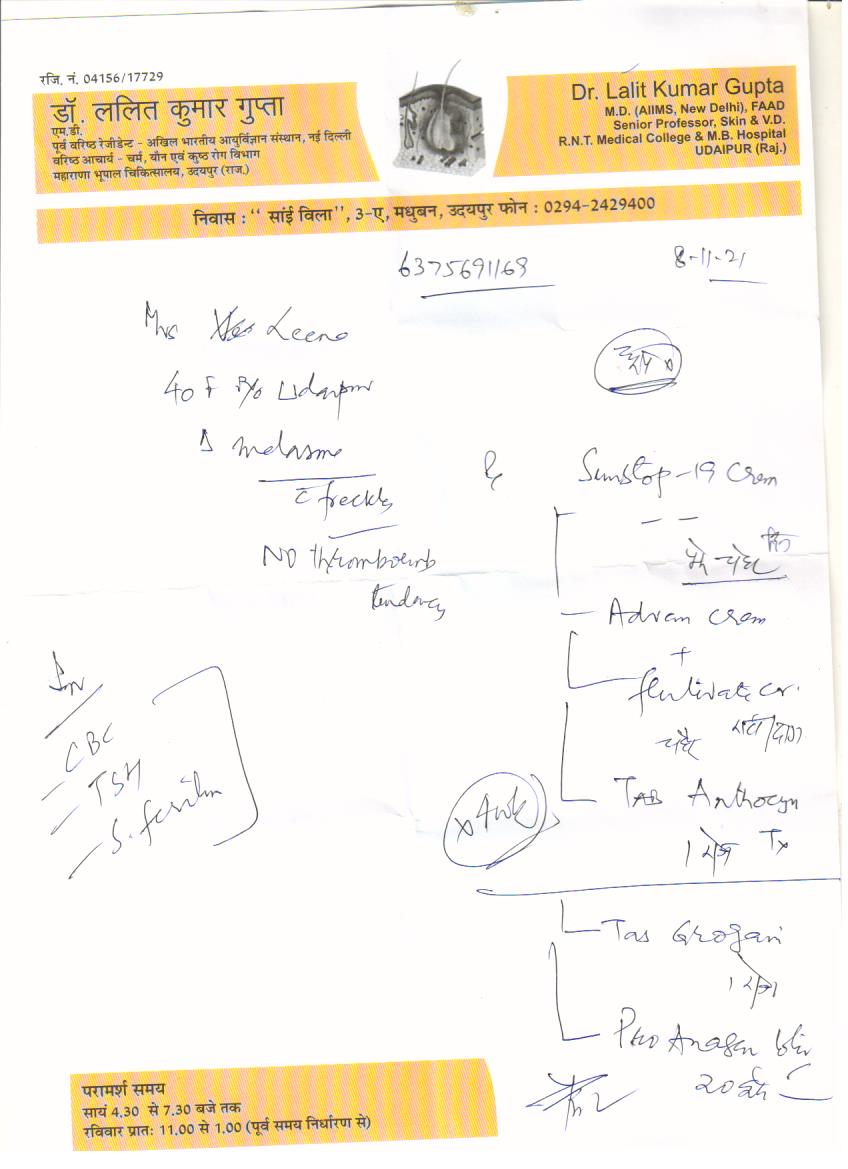 रजि. नं. 04156/17729
डॉ. ललित कुमार गुप्ता
एम.डी.
पूर्व वरिष्ठ रेजीडेन्ट - अखिल भारतीय आयुर्विज्ञान संस्थान, नई दिल्ली
वरिष्ठ आचार्य - चर्म, यौन एवं कुष्ठ रोग विभाग
महाराणा भूपाल चिकित्सालय, उदयपुर (राज.)
Dr. Lalit Kumar Gupta
M.D. (AIIMS, New Delhi), FAAD
Senior Professor, Skin & V.D.
R.N.T. Medical College & M.B. Hospital
UDAIPUR (Raj.)
निवास : “ सांई विला”, 3-ए, मधुबन, उदयपुर फोन : 0294-2429400
6375691168
8-11-21
Mrs Leena
40 F R/o Udaipur
Δ melasma
c̄ freckles
NO
tendency
Inv
CBC
TSH
S. ferritin
Rx Sunstop-19 Crem
Advan Crem
+
flutivate cr.
TAB Anthocyn
1 रोज Tx
x 4wk
Tab Grogain
1 रोज
Pro Anagen
20
परामर्श समय
सायं 4.30 से 7.30 बजे तक
रविवार प्रातः 11.00 से 1.00 (पूर्व समय निर्धारण से)